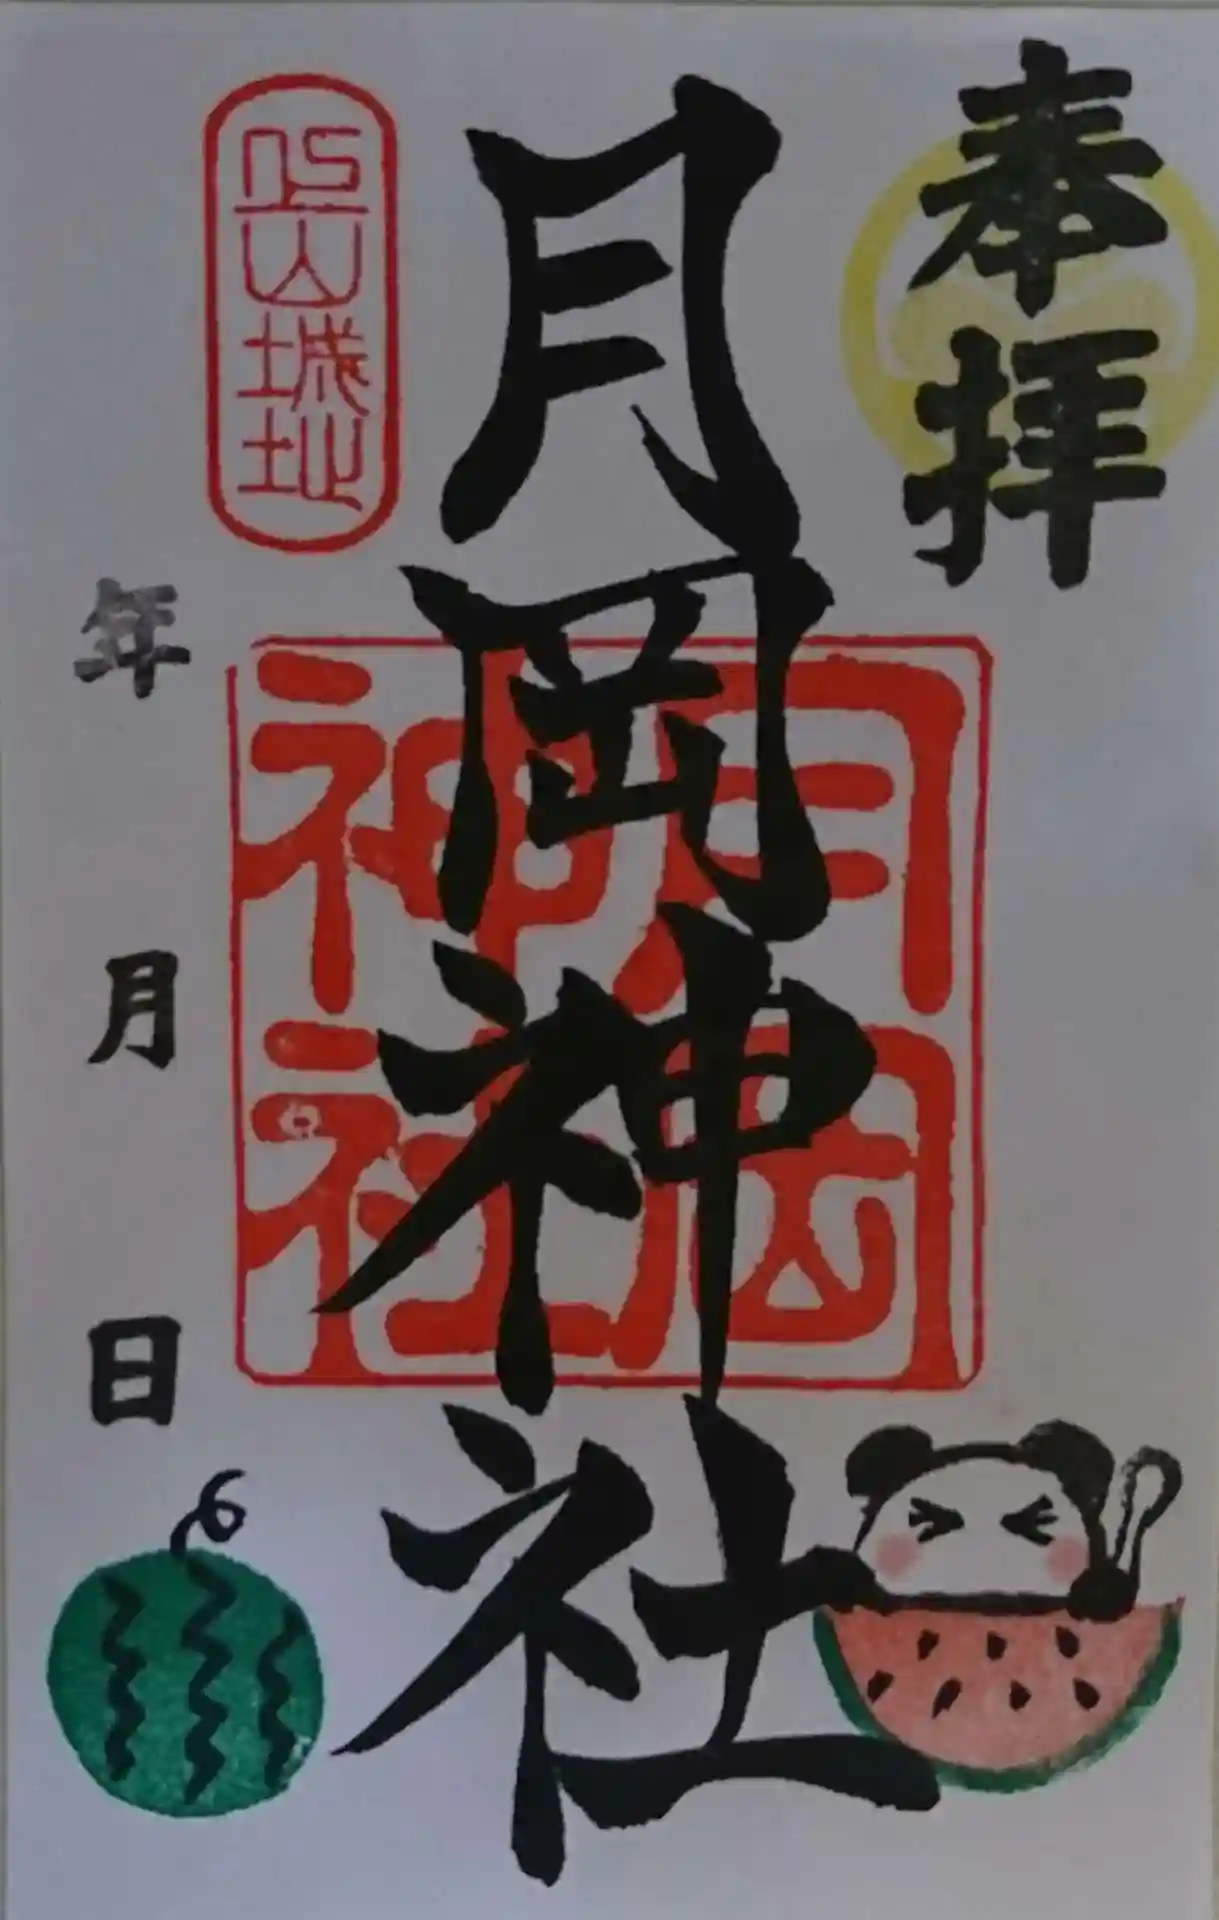 奉拝
月岡神社
月岡
神社
上山城址
年 月 日